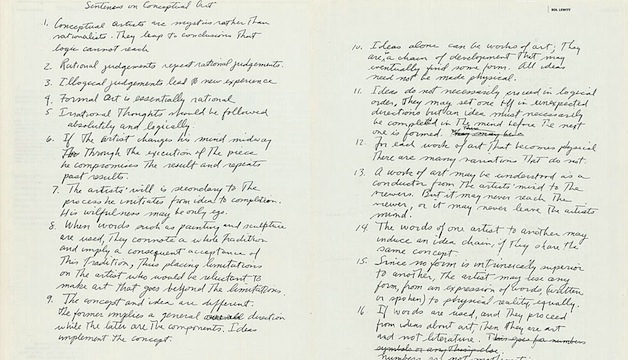 Sentences on Conceptual Art
1. Conceptual Artists are mystics rather than
rationalists. They leap to conclusions that
logic cannot reach
2. Rational judgements repeat rational judgements.
3. Illogical judgements lead to new experience
4. Formal Art is essentially rational
5 Irrational Thoughts should be followed
absolutely and logically.
6. If the artist changes his mind midway
through the execution of the piece
he compromises the result and repeats
past results.
7. The artists' will is secondary to the
process he initiates from idea to completion.
His wilfulness may be only ego.
8. When words such as painting and sculpture
are used, They connote a whole tradition
and imply a consequent acceptance of
this tradition, Thus placing limitations
on the artist who would be reluctant to
make art that goes beyond the limitations
9. The concept and idea are different.
The former implies a general direction
while the later are the components. Ideas
implement the concept.
SOL LEWITT
10. Ideas alone can be works of art; They
are a chain of development that may
eventually find some form. All ideas
need not be made physical.
11. Ideas do not necessarily proceed in logical
order, They may set one off in unexpected
directions but an idea must necessarily
be completed in the mind before the next
one is formed.
12. For each work of art that becomes physical
There are many variations that do not.
13. A work of art may be understood as a
conductor from the artists' mind to the
viewers. But it may never reach the
viewer, or it may never leave the artists
mind.
14. The words of one artist to another may
induce an idea chain, if They share the
same concept.
15. Since no form is intrinsicly superior
to another, The artist may use any
form, from an expression of words, (written
or spoken) to physical reality, equally.
16 If words are used, and They proceed
from ideas about art, Then they are art
and not literature. This goes for numbers
symbols or anything else.
Numbers are not